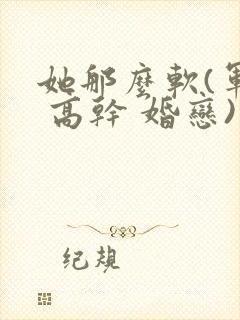 她那麼軟(軍
高幹 婚戀)
纪規